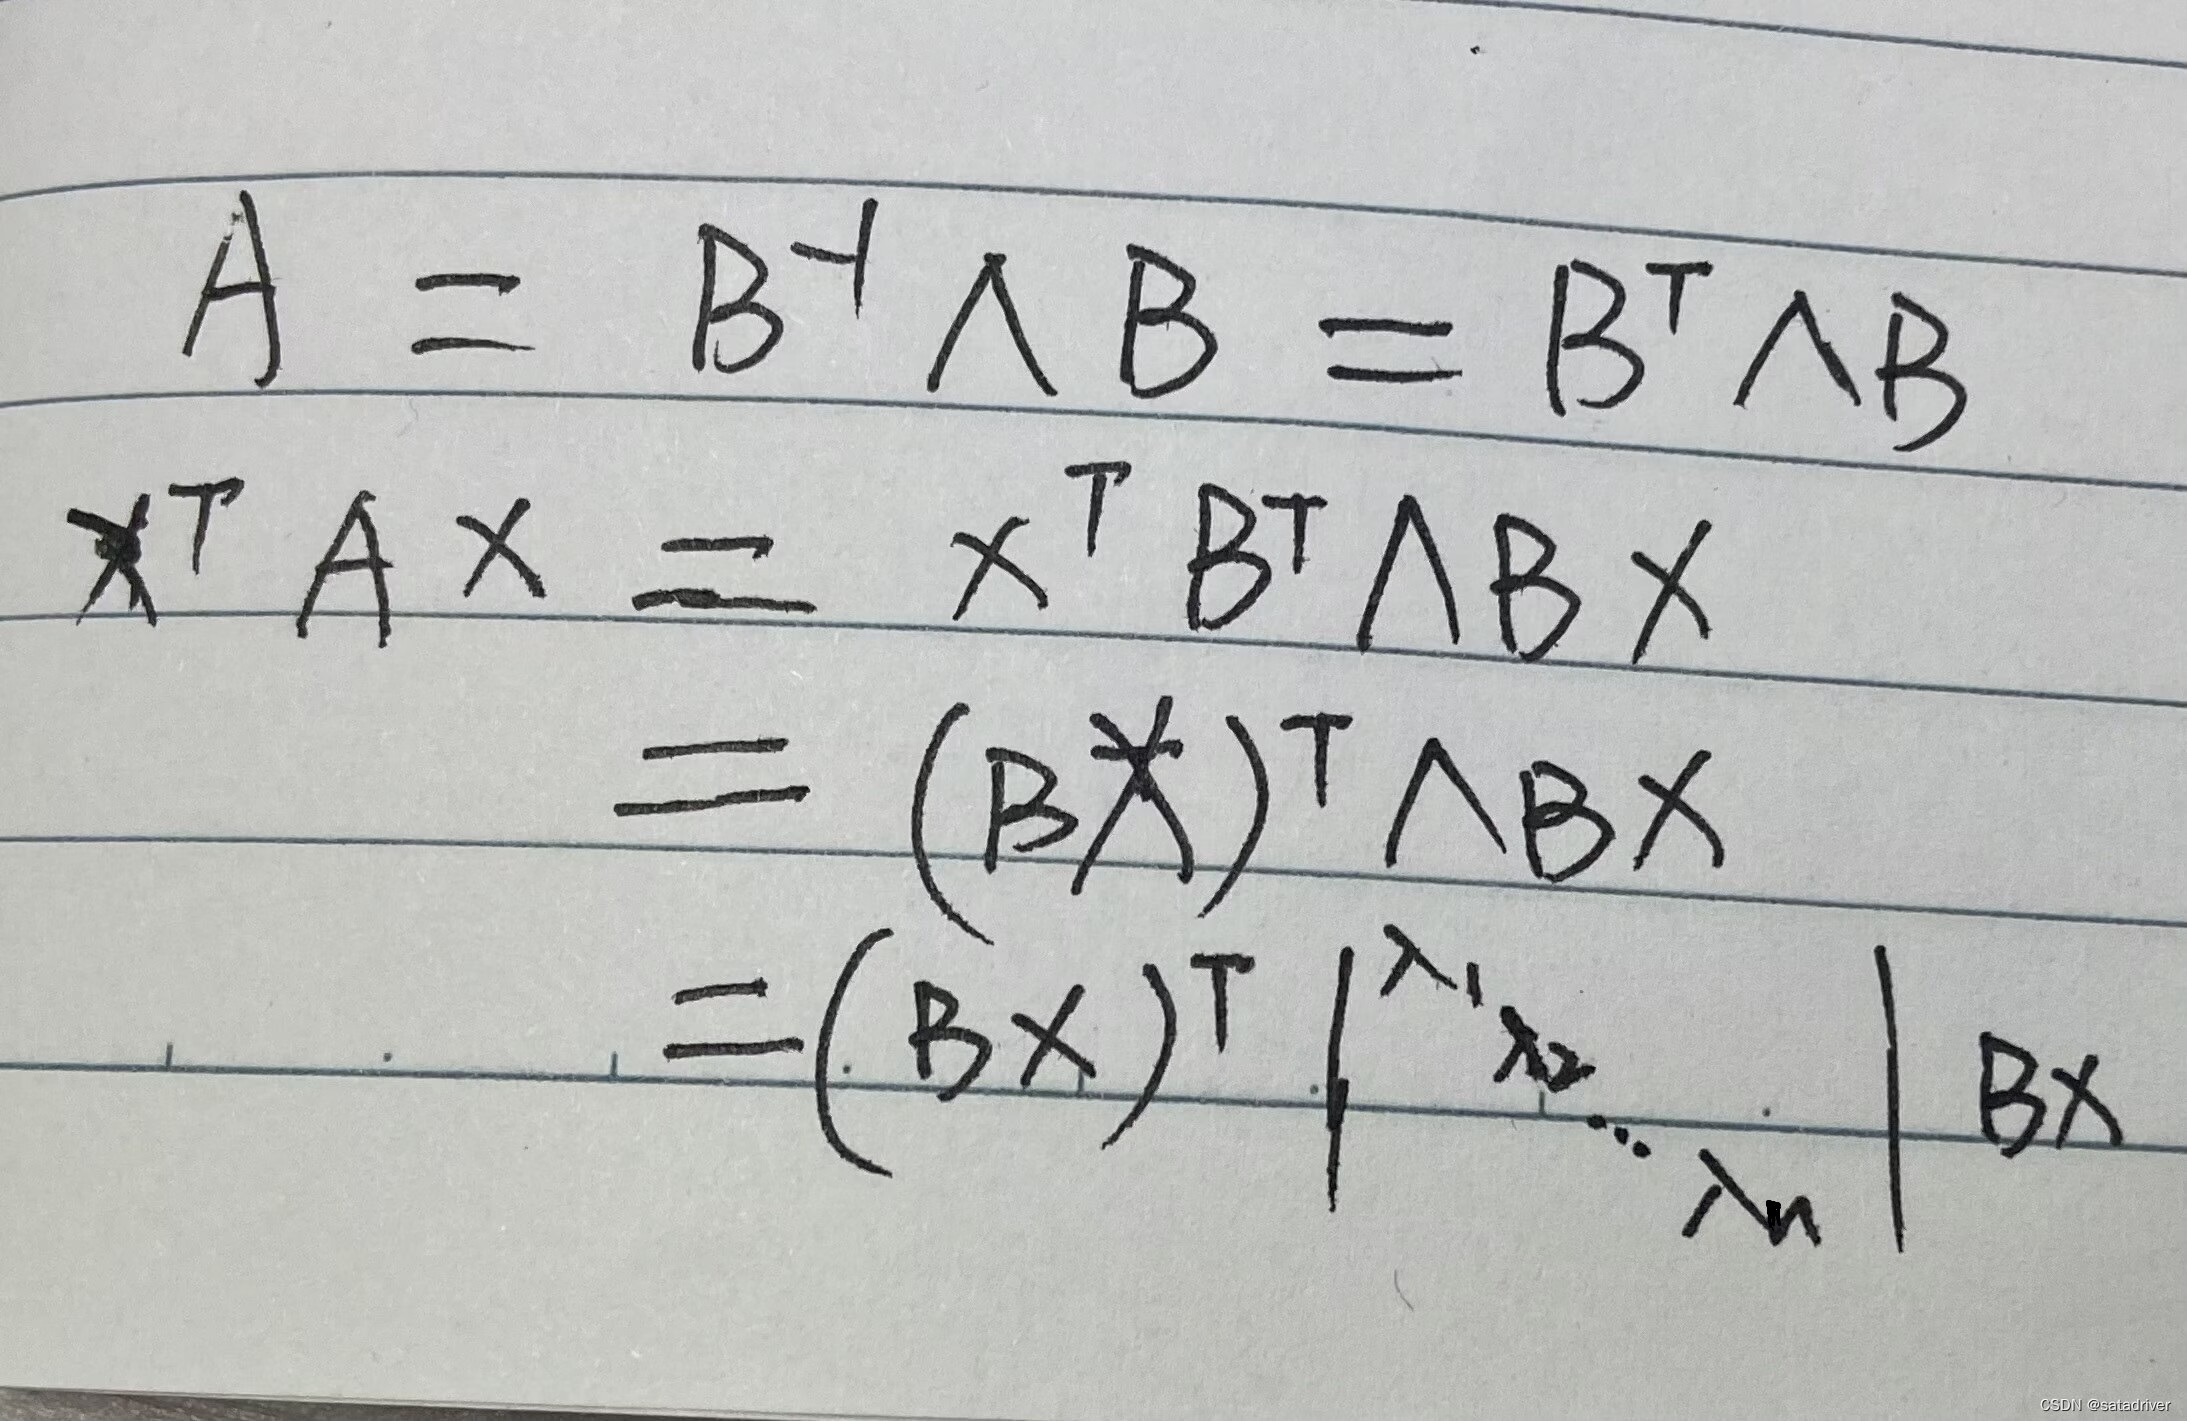 A = B⁻¹ Λ B = Bᵀ Λ B
xᵀ A x = xᵀ Bᵀ Λ B x
= (Bx)ᵀ Λ B x
= (Bx)ᵀ | λ₁ λ₂ ⋱ λₙ | Bx
CSDN @satadriver